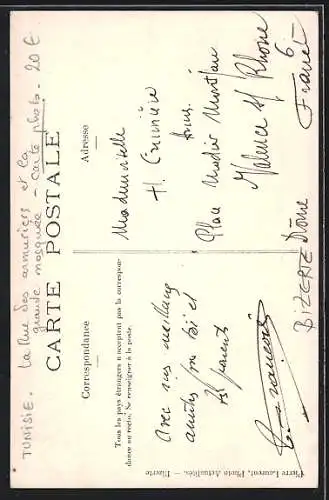 TUNISIE. La Rue des armuriers et la
grande mosquée - carte photo - 20 €
CARTE POSTALE
Correspondance
Adresse
Tous les pays étrangers n'acceptent pas la correspon-
dance au recto. Se renseigner à la poste.
Avec nos meilleurs
amitiés pour toi et
tes parents
Mademoiselle
H.
Place Madier Montjau
Valence s/ Rhône
Drôme
France
BIZERTE
Pierre Laurent, Photo Actualités. - Bizerte